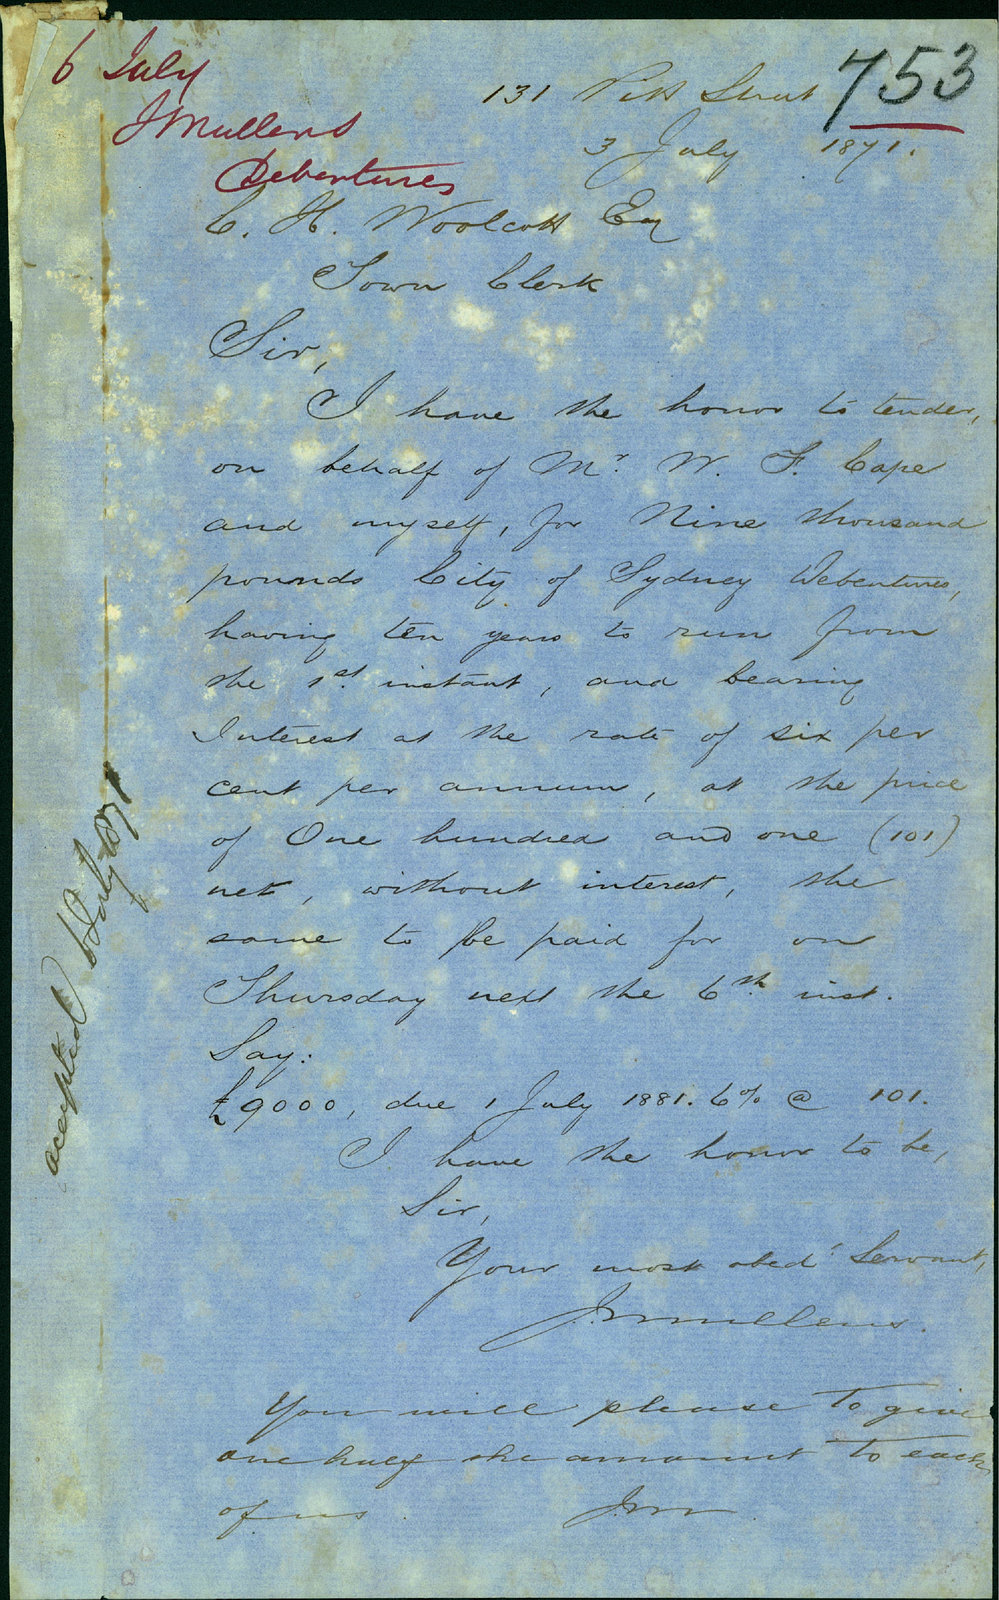 6 July
J Mullens
Debentures
753
131 Pitt Street
3 July 1871.
C. H. Woolcott Esq
Town Clerk
Sir,
I have the honor to tender,
on behalf of Mr. W. F. Cape
and myself, for Nine thousand
pounds City of Sydney Debentures,
having ten years to run from
the 1st. instant, and bearing
Interest at the rate of six per
cent per annum, at the price
of One hundred and one (101)
net, without interest, the
same to be paid for on
Thursday next the 6th. inst.
Say:
£9000, due 1 July 1881. 6% @ 101.
I have the honor to be,
Sir,
Your most obedt Servant,
J Mullens.
You will please to give
one half the amount to each
of us JM
accepted 6 July 1871